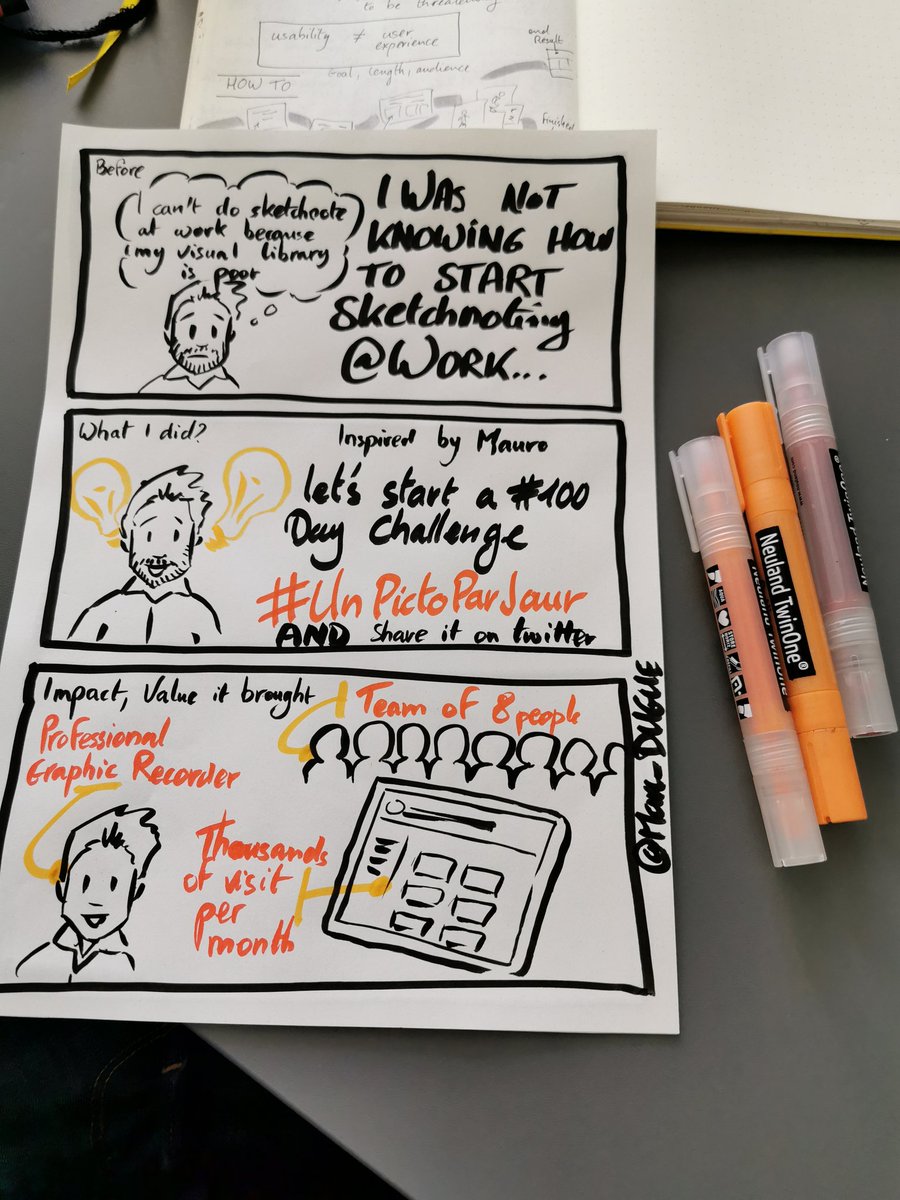 to be threatening
usability ≠ user
experience
end
Result
HOW TO
Goal, length, audience
Finished
Before
I can't do sketchnote
at work because
my visual library
is poor
I WAS NOT
KNOWING HOW
TO START
Sketchnoting
@WORK...
What I did?
Inspired by Mauro
let's start a #100
Day Challenge
#UnPictoParJour
AND share it on twitter
Impact, Value it brought
Team of 8 people
Professional
Graphic Recorder
Thousands
of visit
per
month
Neuland TwinOne®